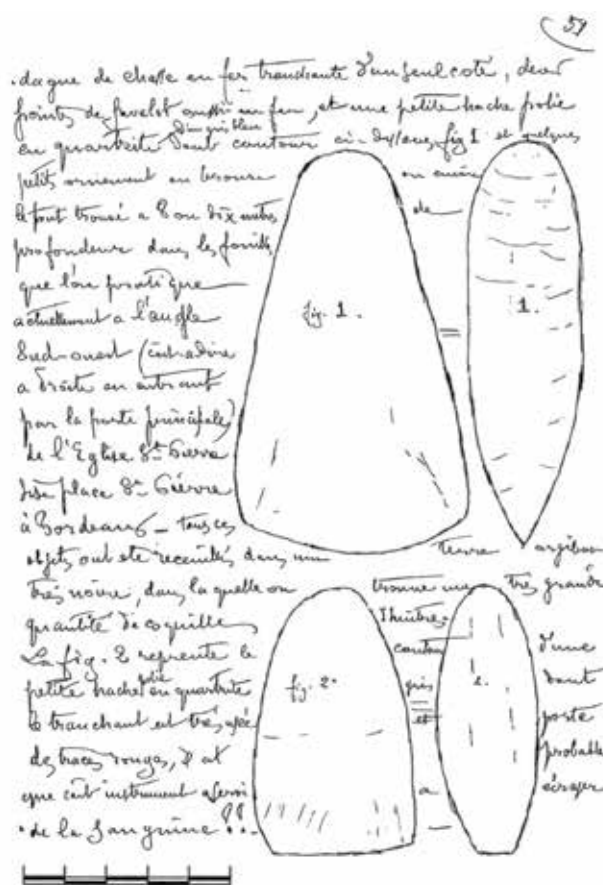 59
dague de chasse en fer tranchante d'un seul coté, deux
points de javelot aussi en fer, et une petite hache polie
en quartzite d'un gris bleu dont contour ci-dessous fig 1 et quelques
petits ornement en bronze ou cuivre
le tout trouvé a 8 ou dix mètres de
profondeur dans les fouilles
que l'on pratique
actuellement a l'angle
Sud-ouest (c'est-a-dire
a droite en entrant
par la porte principale)
de l'Eglise St Pierre
Sise place St Pierre
à Bordeaux _ tous ces
objets ont ete recueillis dans une terre argileuse
très noire, dans laquelle on trouve une très grande
quantité de coquilles d'huitres.
La fig. 2 represente le contour d'une
petite hache polie en quartzite gris dont
le tranchant est très usée et porte
des traces rouges, il at probable
que cet instrument a servi a écraser
de la Sanguine !!
fig. 1.
1.
fig. 2.
2.